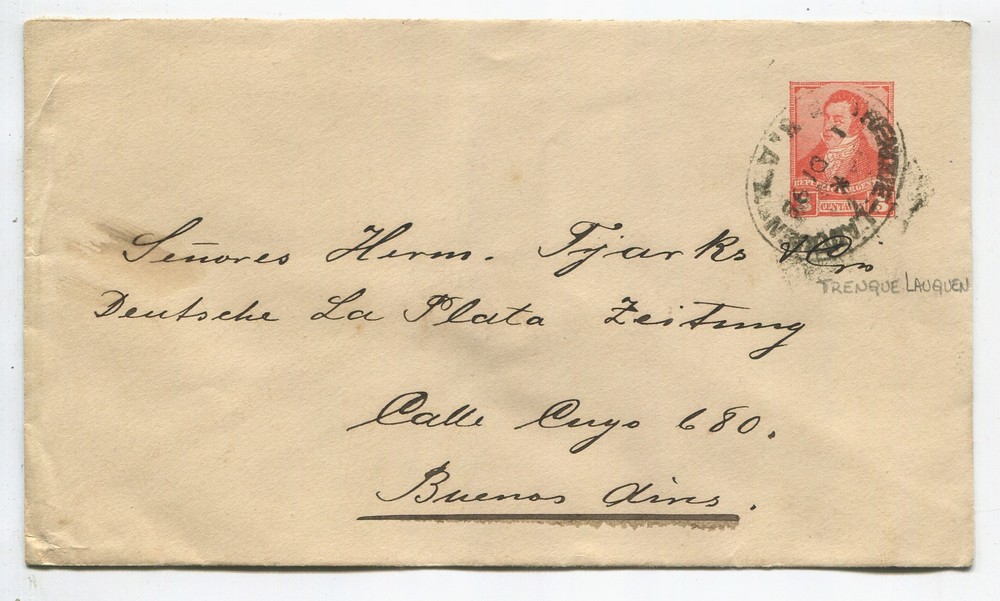 REPUBLICA ARGENTINA
5 CENTAVOS 5
TRENQUE-LAUQUEN
Señores Herm. Tjarks y Cía
TRENQUE LAUQUEN
Deutsche La Plata Zeitung
Calle Cuyo 680.
Buenos Aires.